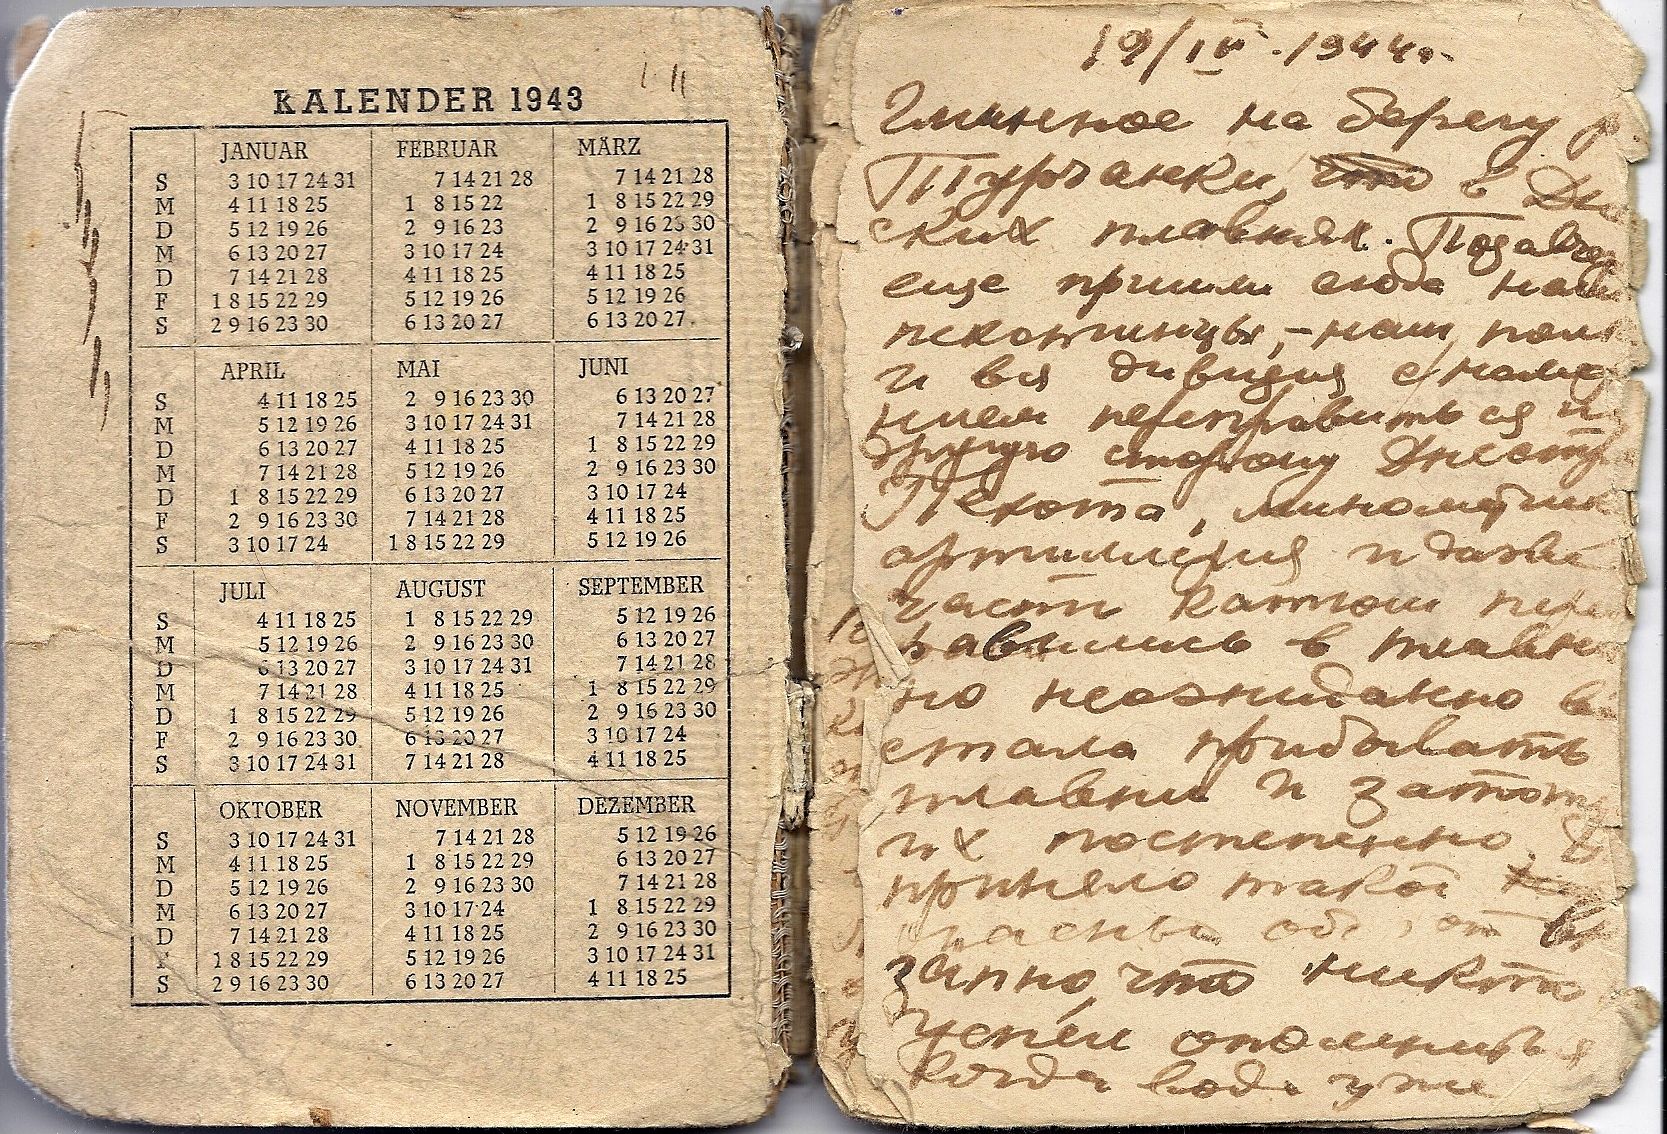 KALENDER 1943
JANUAR FEBRUAR MÄRZ
S 3 10 17 24 31 7 14 21 28 7 14 21 28
M 4 11 18 25 1 8 15 22 1 8 15 22 29
D 5 12 19 26 2 9 16 23 2 9 16 23 30
M 6 13 20 27 3 10 17 24 3 10 17 24 31
D 7 14 21 28 4 11 18 25 4 11 18 25
F 1 8 15 22 29 5 12 19 26 5 12 19 26
S 2 9 16 23 30 6 13 20 27 6 13 20 27
APRIL MAI JUNI
S 4 11 18 25 2 9 16 23 30 6 13 20 27
M 5 12 19 26 3 10 17 24 31 7 14 21 28
D 6 13 20 27 4 11 18 25 1 8 15 22 29
M 7 14 21 28 5 12 19 26 2 9 16 23 30
D 1 8 15 22 29 6 13 20 27 3 10 17 24
F 2 9 16 23 30 7 14 21 28 4 11 18 25
S 3 10 17 24 1 8 15 22 29 5 12 19 26
JULI AUGUST SEPTEMBER
S 4 11 18 25 1 8 15 22 29 5 12 19 26
M 5 12 19 26 2 9 16 23 30 6 13 20 27
D 6 13 20 27 3 10 17 24 31 7 14 21 28
M 7 14 21 28 4 11 18 25 1 8 15 22 29
D 1 8 15 22 29 5 12 19 26 2 9 16 23 30
F 2 9 16 23 30 6 13 20 27 3 10 17 24
S 3 10 17 24 31 7 14 21 28 4 11 18 25
OKTOBER NOVEMBER DEZEMBER
S 3 10 17 24 31 7 14 21 28 5 12 19 26
M 4 11 18 25 1 8 15 22 29 6 13 20 27
D 5 12 19 26 2 9 16 23 30 7 14 21 28
M 6 13 20 27 3 10 17 24 1 8 15 22 29
D 7 14 21 28 4 11 18 25 2 9 16 23 30
F 1 8 15 22 29 5 12 19 26 3 10 17 24 31
S 2 9 16 23 30 6 13 20 27 4 11 18 25
19/IV-1944г.
Глинное на берегу р.
Турчанки, в
ских плавнях. Позавчера
еще пришли сюда
наш полк
и вся дивизия с
переправиться
другую сторону Днестр
Пехота, минометчик
артиллерия и даже
части катюш пере
равились в плавн
но неожиданно в
стала прибывать
плавни и затоп
их постепенно.
приняло такой
от вн
запно, что никто
успел опомниться
когда вода уже